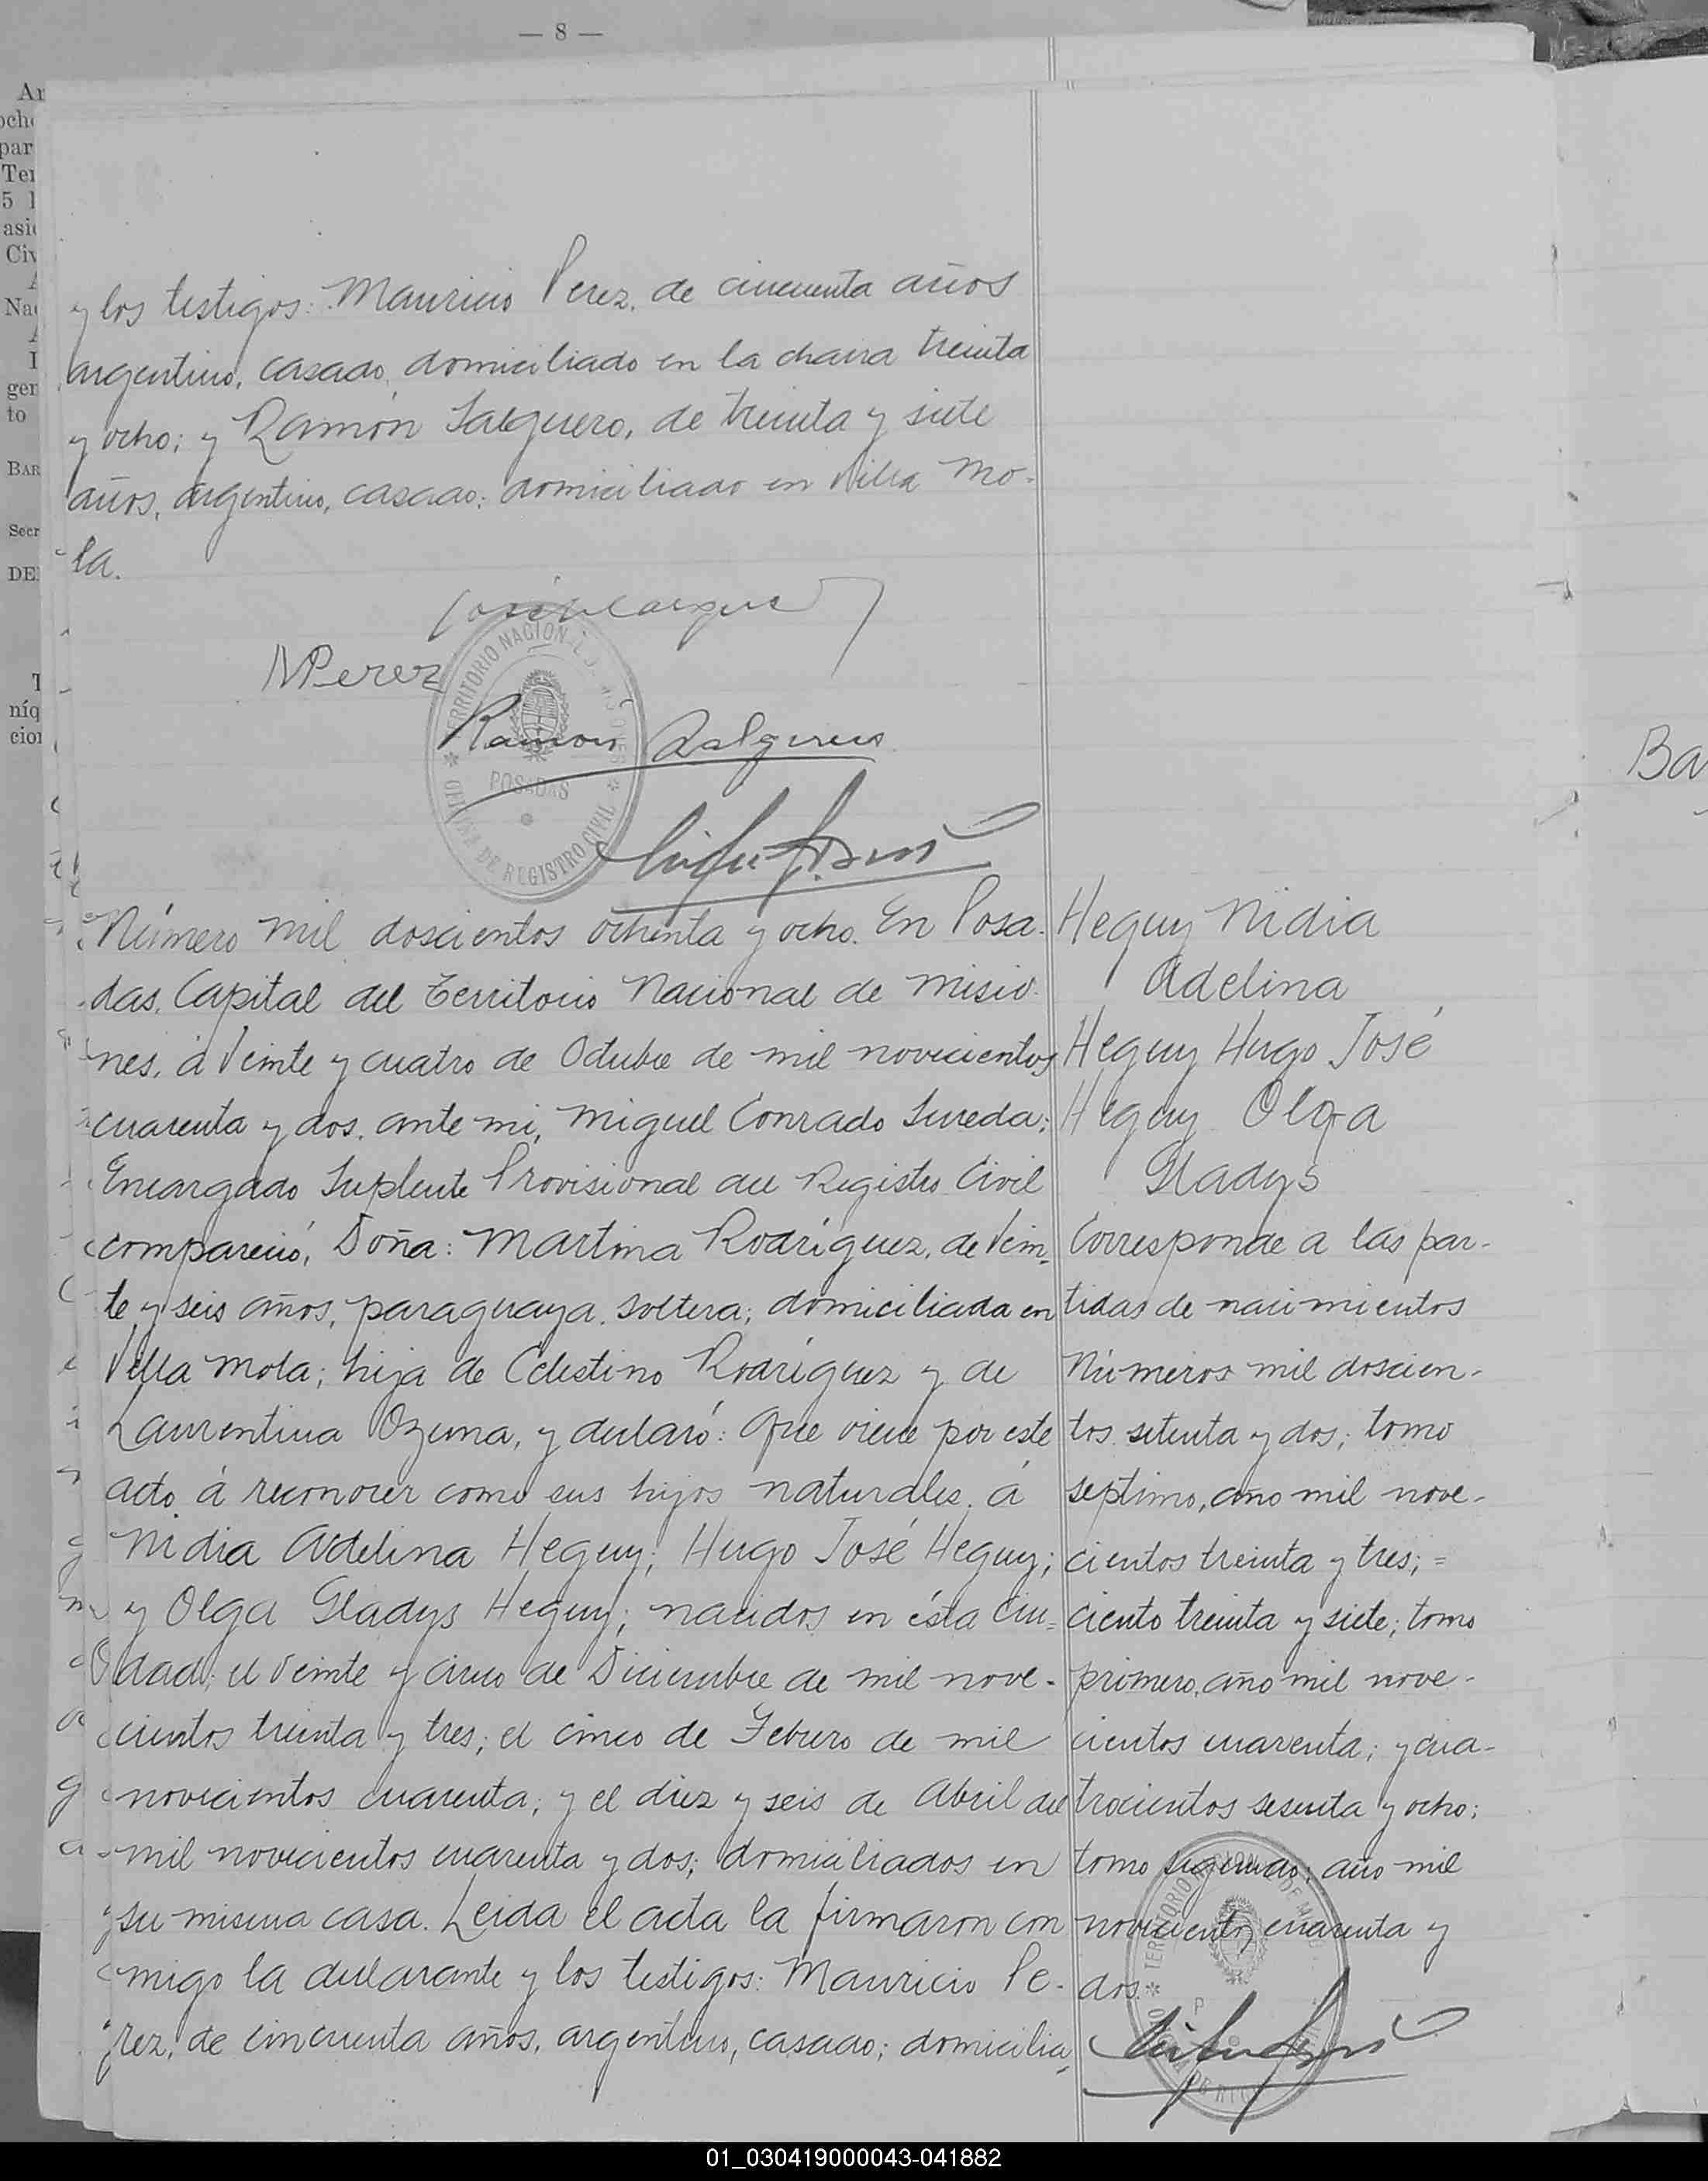 — 8 —
y los testigos: Mauricio Perez, de cincuenta años
argentino, casado, domiciliado en la chacra treinta
y ocho; y Ramón Salguero, de treinta y siete
años, argentino, casado; domiciliado en Villa Mo-
la.
MPerez
Ramon Salguero
TERRITORIO NACIONAL DE MISIONES
POSADAS
OFICINA DE REGISTRO CIVIL
Número mil doscientos ochenta y ocho. En Posa-
das, Capital del Territorio Nacional de Misio-
nes, á Veinte y cuatro de Octubre de mil novecientos
cuarenta y dos, ante mi, Miguel Conrado Sureda;
Encargado Suplente Provisional del Registro Civil
compareció, Doña: Martina Rodríguez, de Vein-
te y seis años, paraguaya, soltera; domiciliada en
Villa Mola; hija de Celestino Rodríguez y de
Laurentina Ozuna, y declaró: Que viene por este
acto á reconocer como sus hijos naturales, á
Nidia Adelina Heguy; Hugo José Heguy;
y Olga Gladys Heguy; nacidos en ésta Ciu-
dad; el Veinte y cinco de Diciembre de mil nove-
cientos treinta y tres; el cinco de Febrero de mil
novecientos cuarenta; y el diez y seis de Abril del
mil novecientos cuarenta y dos; domiciliados en
su misma casa. Leida el acta la firmaron con
migo la declarante y los testigos: Mauricio Pe-
rez, de cincuenta años, argentino, casado; domicilia-
Heguy Nidia
Adelina
Heguy Hugo José
Heguy Olga
Gladys
Corresponde a las par-
tidas de nacimientos
Números mil doscien-
tos setenta y dos; tomo
septimo, año mil nove-
cientos treinta y tres; =
ciento treinta y siete; tomo
primero, año mil nove-
cientos cuarenta; y cua-
trocientos sesenta y ocho;
tomo segundo; año mil
novecientos cuarenta y
dos.
Ba
01_030419000043-041882